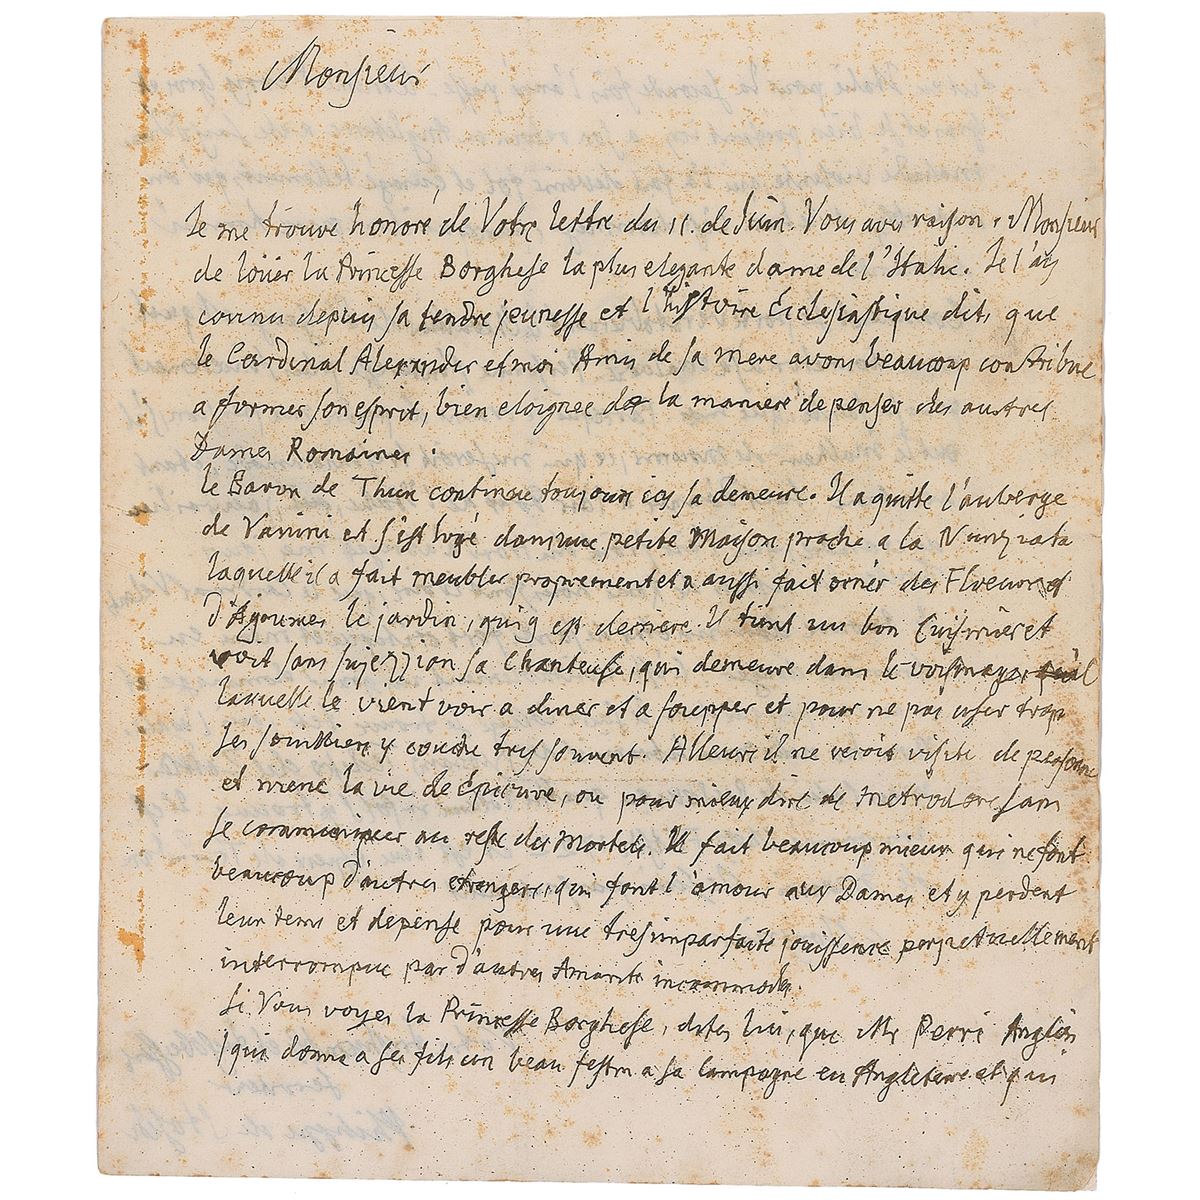 Monsieur
Je me trouve honoré de Votre lettre du 11. de Juin. Vous avés raison, Monsieur
de loüer la Princesse Borghese la plus elegante dame de l'Italie. Je l'ais
connu depuis sa tendre jeunesse et l'histoire Ecclesiastique dits que
le Cardinal Alexander et moi Amis de sa mere avons beaucoup contribue
a former son esprit, bien eloignee de la maniere de penser des autres
Dames Romaines.
le Baron de Thun continue toujours ici sa demeure. Il a quitté l'auberge
de Vanini et s'est logé dans une petite Maison proche a la Nunziata
laquelle il a fait meubler proprement et a aussi fait orner des Fleurs et
d'Agrumes le jardin, qui y est derriere. Il tient un bon Cuisinier et
voit sans sujezzion sa Chanteuse, qui demeure dans le voisinage,
laquelle le vient voir a diner et a soupper et pour ne pas user trop
ses souliers y couche tres souvent. Alleurs il ne vit visite de personne
et mene la vie de Epicure, ou pour mieux dire de Metrodore sans
se communiquer au reste des Mortels. Il fait beaucoup mieux qui ne font
beaucoup d'autres etrangers, qui font l'amour aux Dames et y perdent
leur tems et depense pour une tres imparfaite jouissence perpetuellement
interrompue par d'autres Amants incommodes.
Si Vous voyes la Princesse Borghese, dites lui, que Mr Perri Anglois
(qui donna a ses fils un beau festin a sa campagne en Angleterre et qui